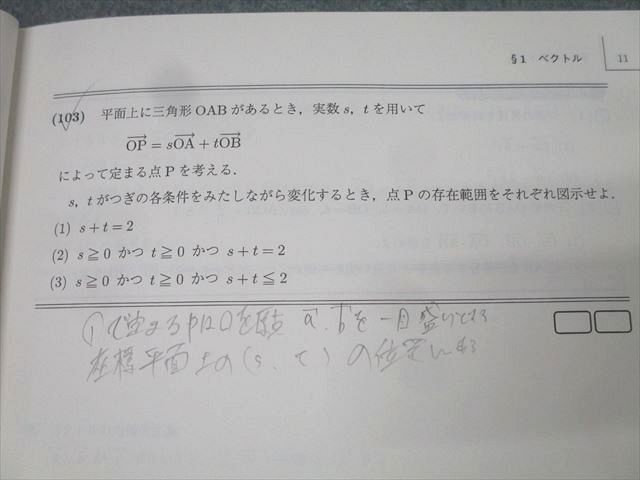 §1 ベクトル 11
(103) 平面上に三角形 OAB があるとき，実数 s，t を用いて
OP = sOA + tOB
によって定まる点 P を考える．
s，t がつぎの各条件をみたしながら変化するとき，点 P の存在範囲をそれぞれ図示せよ．
(1) s+t=2
(2) s≧0 かつ t≧0 かつ s+t=2
(3) s≧0 かつ t≧0 かつ s+t≦2
①で定まるPはOを原点 a，bを一目盛りとする
座標平面上の(s，t)の位置にある